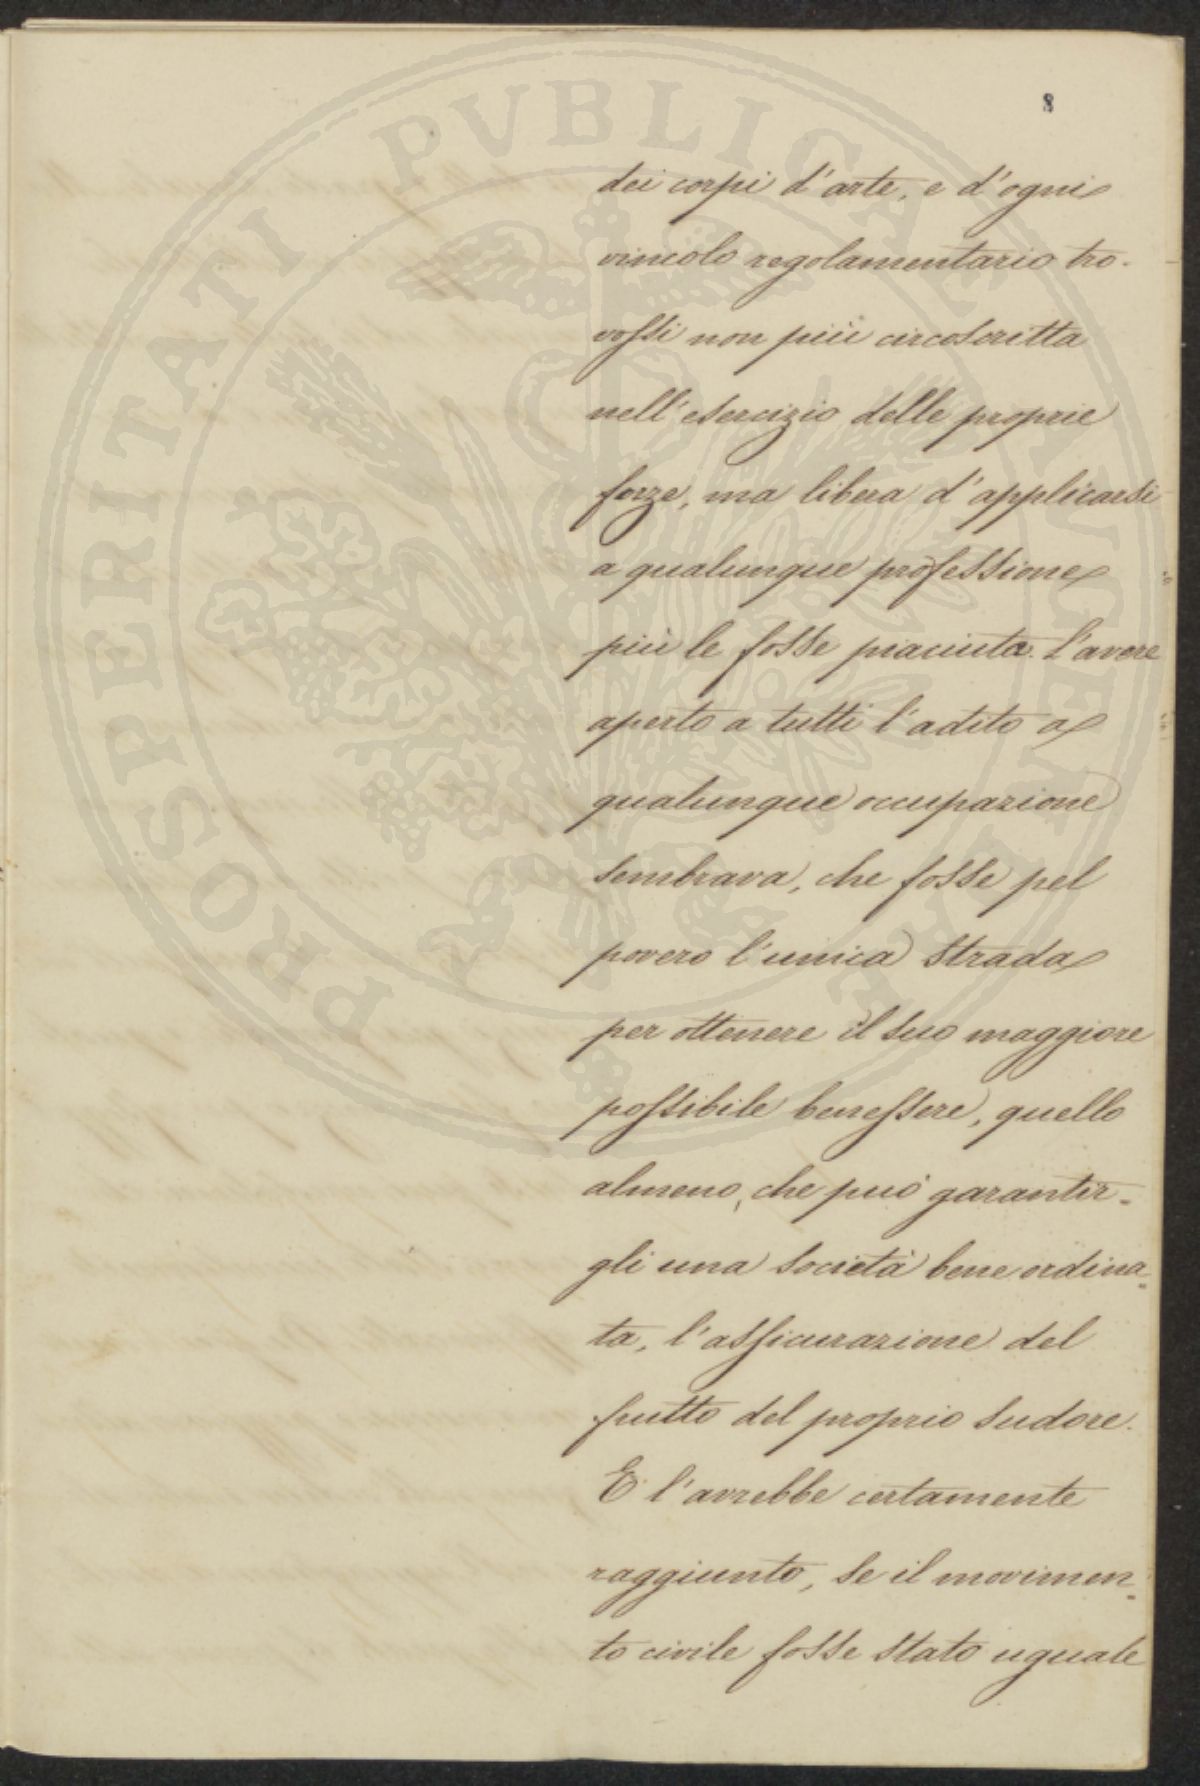 PROSPERITATI PVBLICAE AVGENDAE
8
dei corpi d'arte, e d'ogni
vincolo regolamentario tro-
vossi non più circoscritta
nell'esercizio delle proprie
forze, ma libera d'applicarsi
a qualunque professione
più le fosse piaciuta. L'avere
aperto a tutti l'adito a
qualunque occupazione
sembrava, che fosse pel
povero l'unica strada
per ottenere il suo maggiore
possibile benessere, quello
almeno, che può garantir-
gli una società bene ordina-
ta, l'assicurazione del
frutto del proprio sudore.
E l'avrebbe certamente
raggiunto, se il movimen-
to civile fosse stato uguale